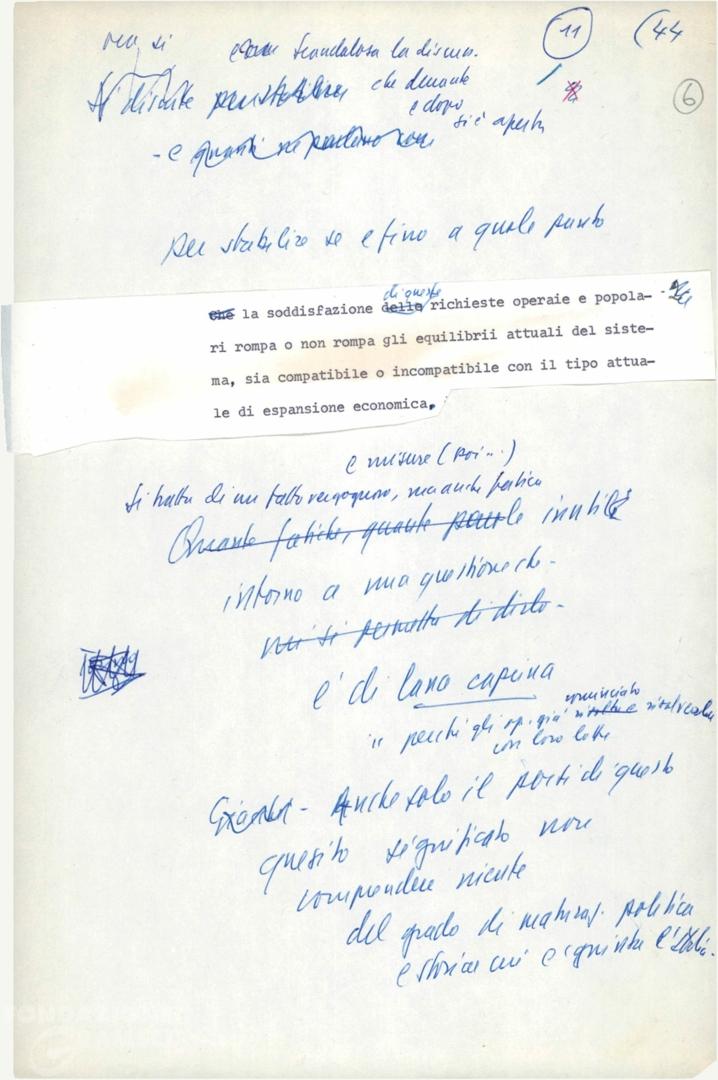 ma si come scandalosa la discus. 11 (44
Si discute che durante 6
e dopo
- e quanti si è aperta
per stabilire se e fino a quale punto
di queste
che la soddisfazione delle richieste operaie e popola-
ri rompa o non rompa gli equilibrii attuali del siste-
ma, sia compatibile o incompatibile con il tipo attua-
le di espansione economica.
e misure (poi...)
Si tratta di un fatto vergognoso, ma anche
Quante fatiche, quante parole inutili
intorno a una questione che -
mi si permetta di dirlo -
è di lana caprina
cominciato
" perché gli op. già risolverla
con loro lotte
- Anche solo il porsi di questo
quesito significato non
comprendere niente
del grado di maturaz. politica
e storica cui è giunta l'Italia.